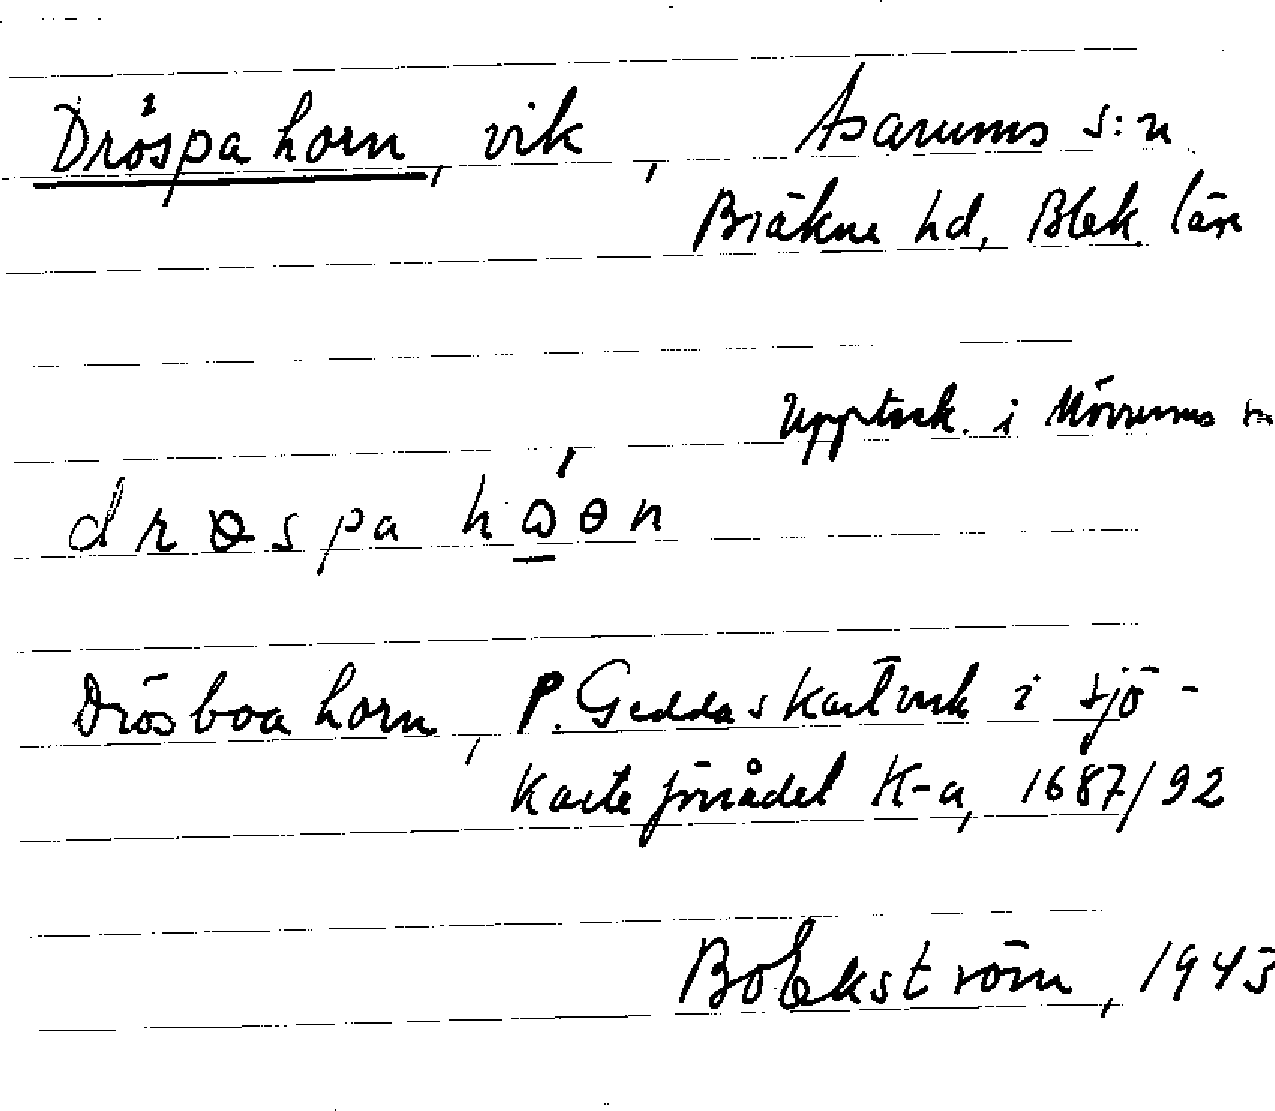 Dröspa horn, vik, Asarums s:n
Bräkne hd, Blek. län
Uppteck. i Mörrums sn
drɵspa hɷ́ɵn
Drösboa horn, P. Geddas kartverk i sjö-
karteförrådet K-a, 1687/92
Bo Ekström, 1943